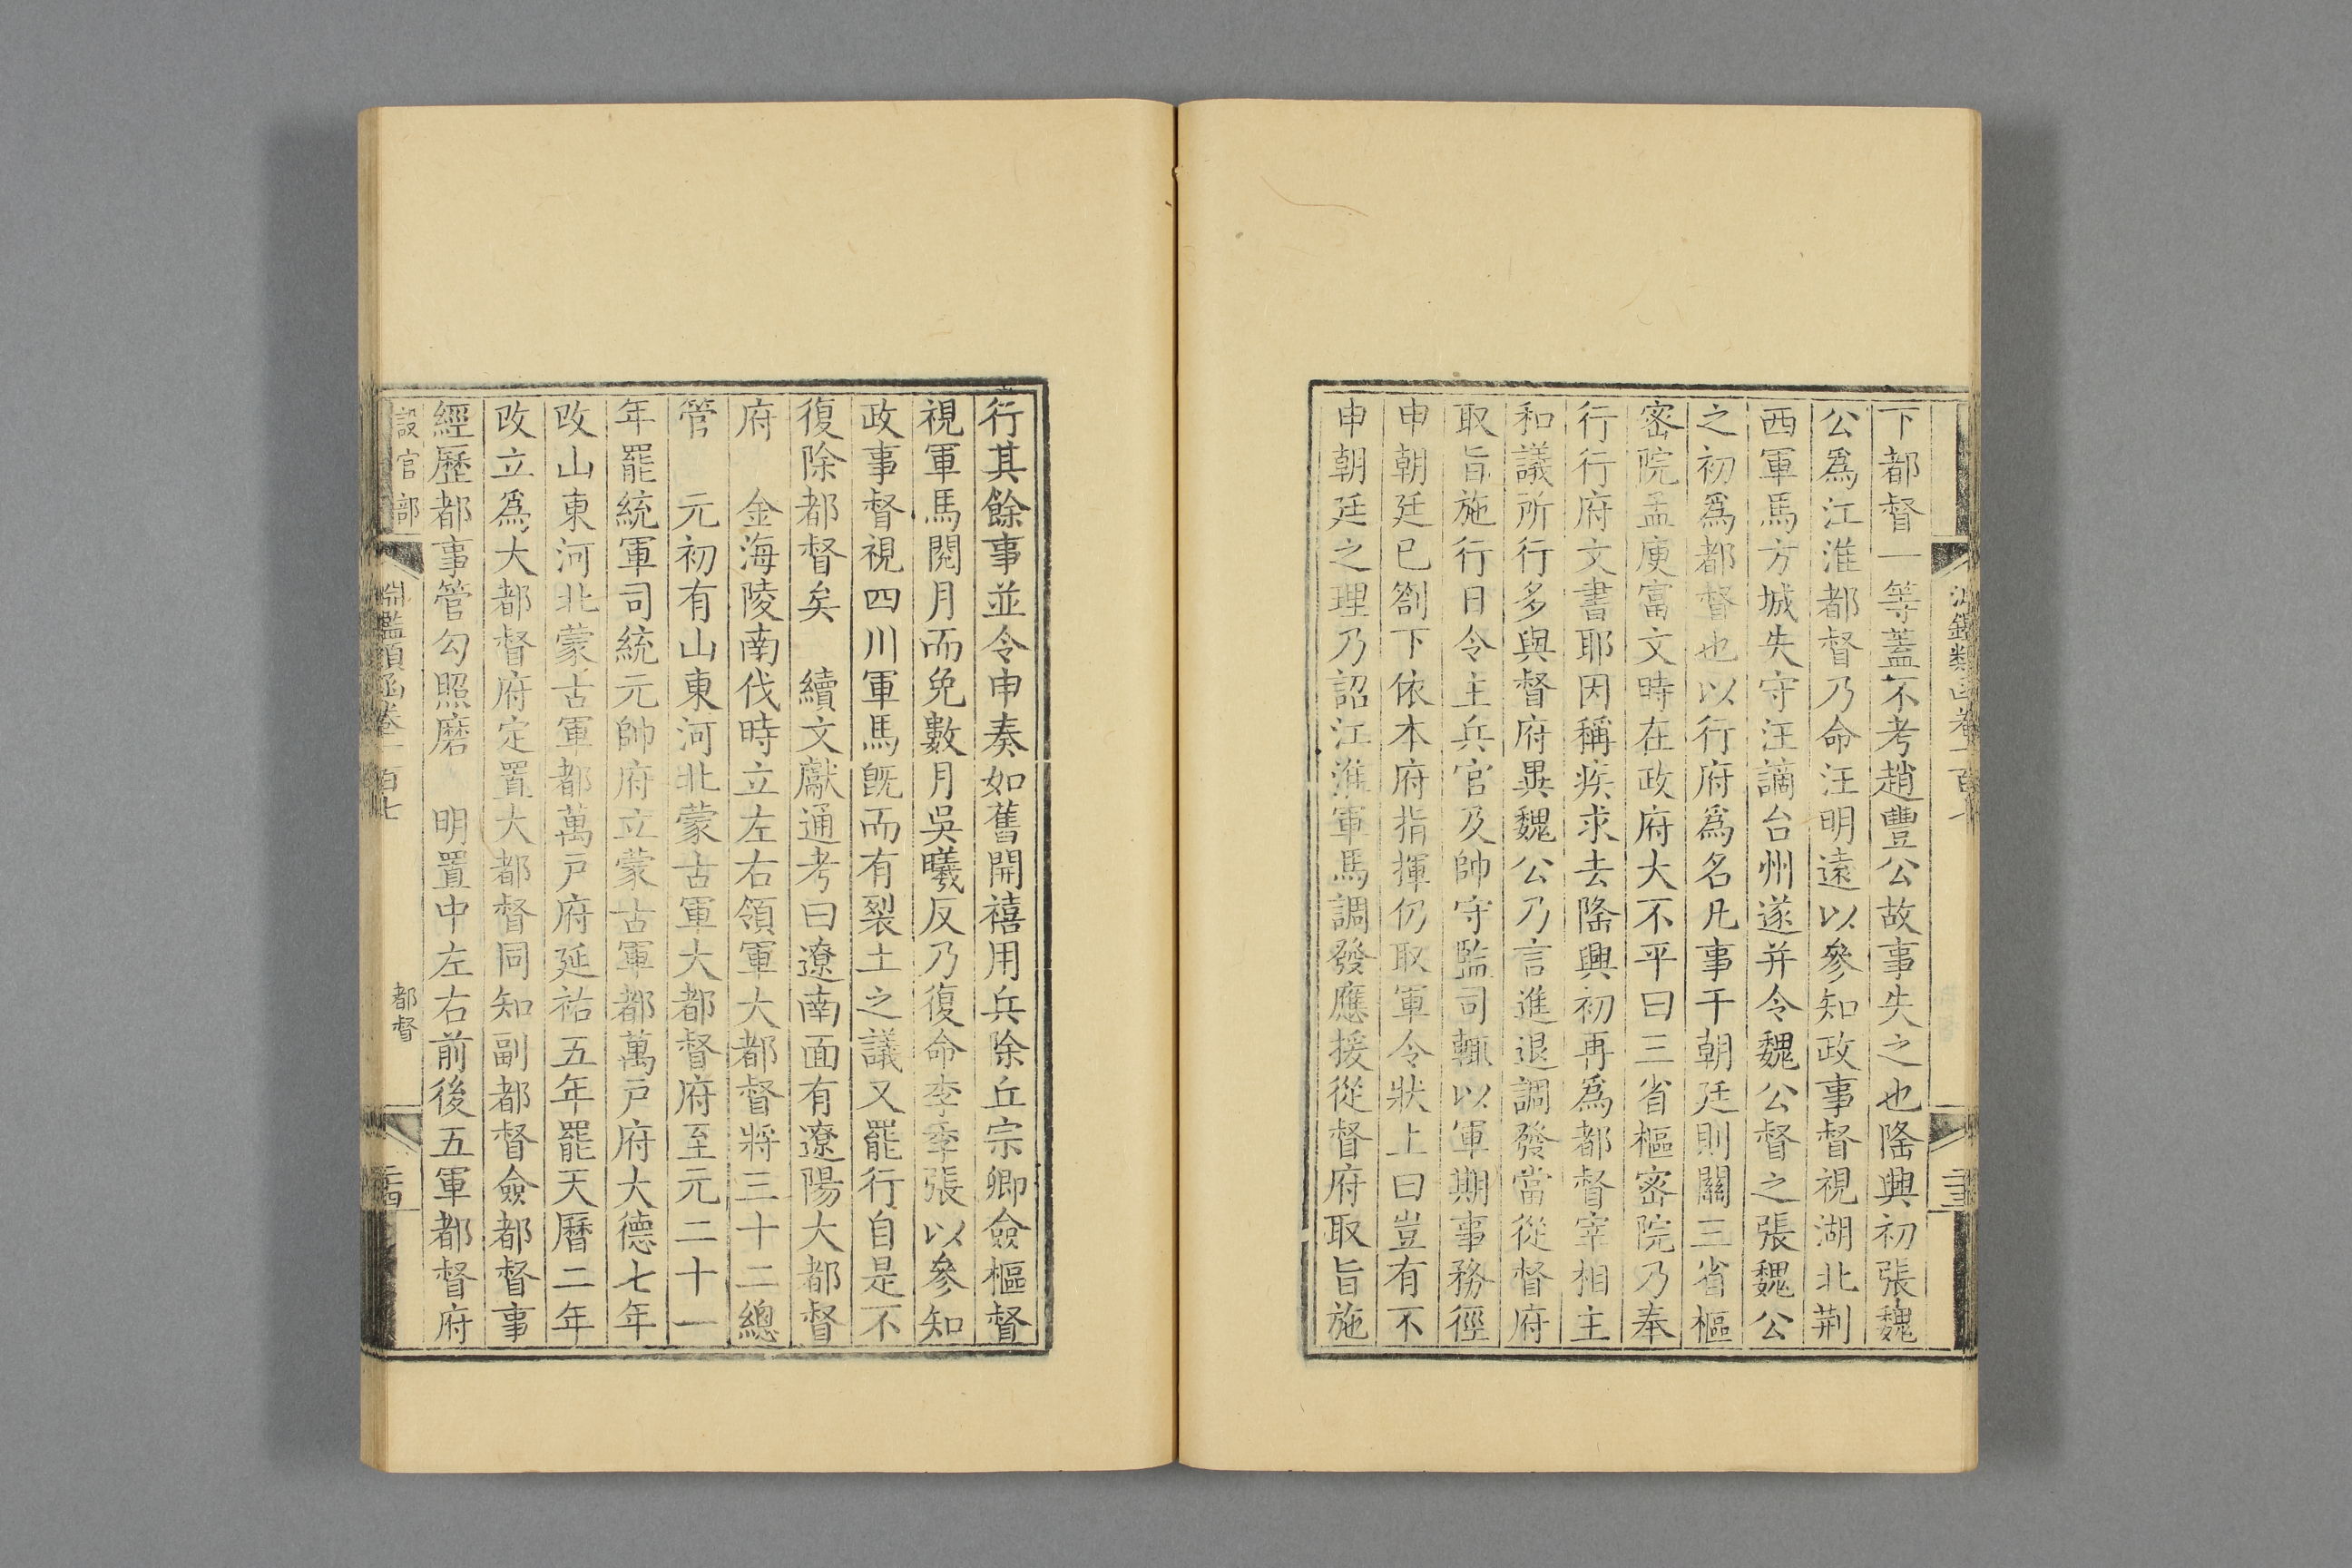 下都督一等蓋不考趙豐公故事失之也隆興初張魏
公爲江淮都督乃命汪明遠以參知政事督視湖北荆
西軍馬方城失守汪謫台州遂并令魏公督之張魏公
之初爲都督也以行府爲名凡事干朝廷則關三省樞
密院孟庾富文時在政府大不平曰三省樞密院乃奉
行行府文書耶因稱疾求去隆興初再爲都督宰相主
和議所行多與督府異魏公乃言進退調發當從督府
取旨施行日令主兵官及帥守監司輙以軍期事務徑
申朝廷已劄下依本府指揮仍取軍令狀上曰豈有不
申朝廷之理乃詔江淮軍馬調發應援從督府取旨施
行其餘事並令申奏如舊開禧用兵除丘宗卿僉樞督
視軍馬閱月而免數月吳曦反乃復命李季張以參知
政事督視四川軍馬旣而有裂土之議又罷行自是不
復除都督矣 續文獻通考曰遼南面有遼陽大都督
府 金海陵南伐時立左右領軍大都督將三十二總
管 元初有山東河北蒙古軍大都督府至元二十一
年罷統軍司統元帥府立蒙古軍都萬戸府大德七年
改山東河北蒙古軍都萬戸府延祐五年罷天曆二年
改立爲大都督府定置大都督同知副都督僉都督事
經歷都事管勾照磨 明置中左右前後五軍都督府
設官部
淵鑑類函卷一百七
都督
二十四